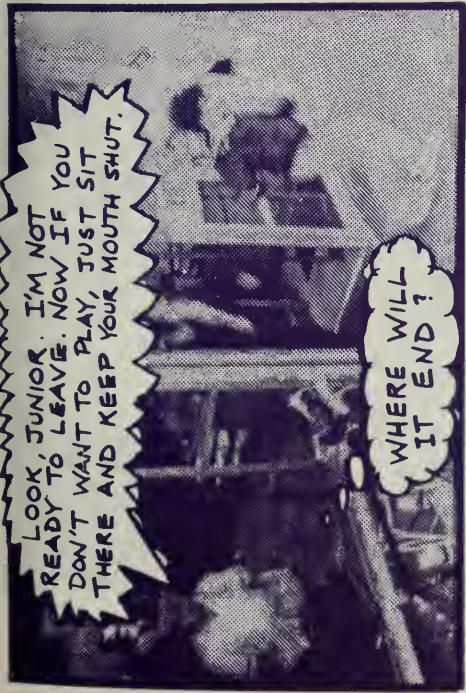 LOOK, JUNIOR. I'M NOT
READY TO LEAVE. NOW IF YOU
DON'T WANT TO PLAY, JUST SIT
THERE AND KEEP YOUR MOUTH SHUT.
WHERE WILL
IT END?